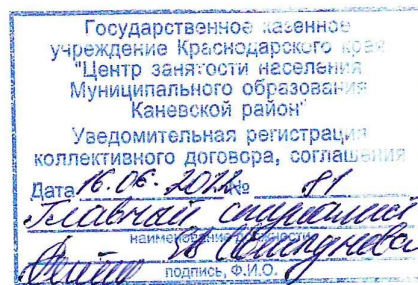 Государственное казенное
учреждение Краснодарского края
"Центр занятости населения
Муниципального образования
Каневской район"
Уведомительная регистрация
коллективного договора, соглашения
Дата 16.06.2022 № 81
Главный специалист
наименование должности
подпись, Ф.И.О.